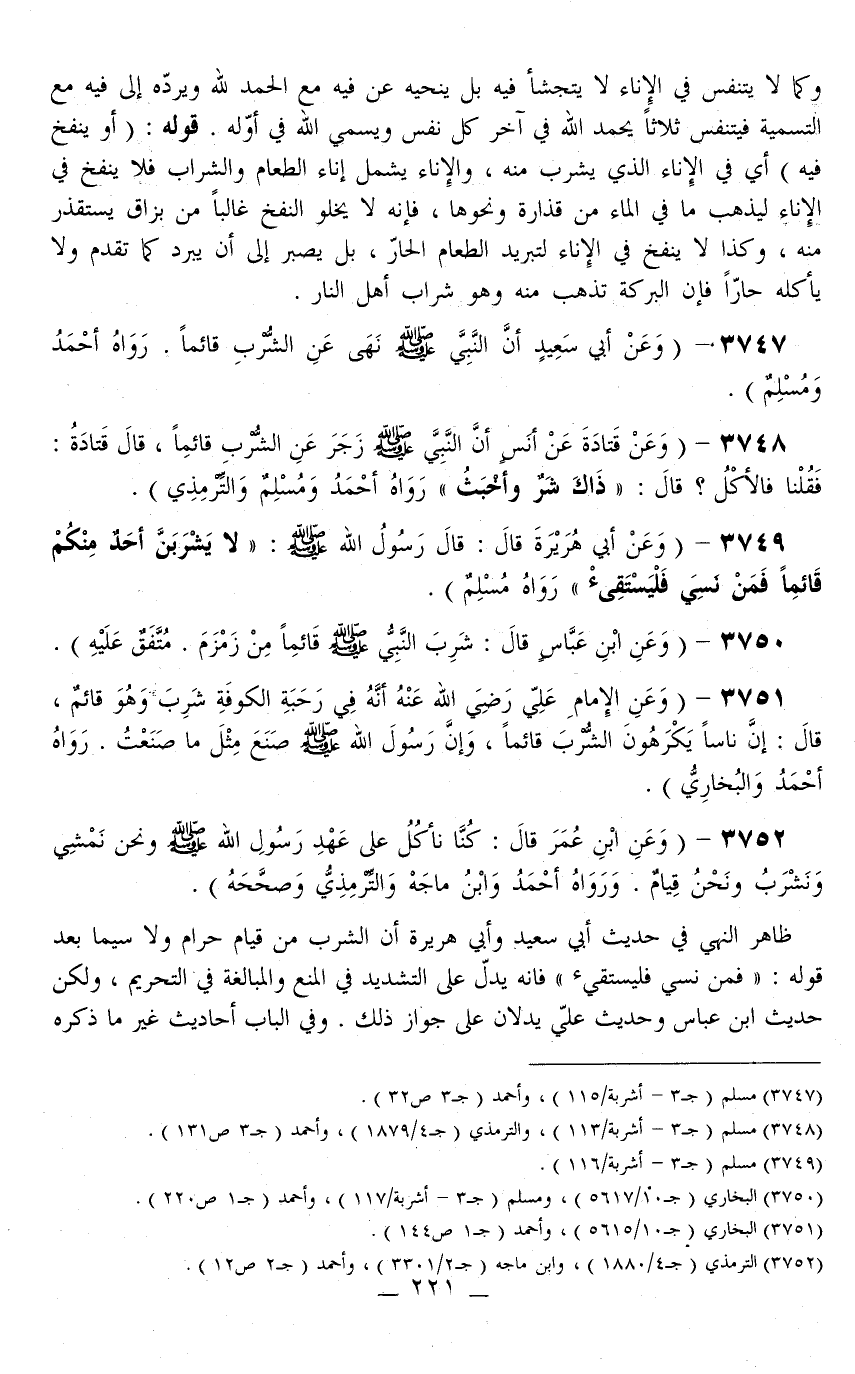 وكما لا يتنفس في الإِناء لا يتجشأ فيه بل ينحيه عن فيه مع الحمد لله ويردّه إلى فيه مع
التسمية فيتنفس ثلاثاً يحمد الله في آخر كل نفس ويسمي الله في أوّله . قوله : ( أو ينفخ
فيه ) أي في الإِناء الذي يشرب منه ، والإِناء يشمل إناء الطعام والشراب فلا ينفخ في
الإِناء ليذهب ما في الماء من قذارة ونحوها ، فإنه لا يخلو النفخ غالباً من بزاق يستقذر
منه ، وكذا لا ينفخ في الإِناء لتبريد الطعام الحارّ ، بل يصبر إلى أن يبرد كما تقدم ولا
يأكله حارّاً فإن البركة تذهب منه وهو شراب أهل النار .
٣٧٤٧ – ( وَعَنْ أبي سَعِيدٍ أنَّ النَّبِيَّ ﷺ نَهَى عَنِ الشُّرْبِ قائماً . رَوَاهُ أحْمَدُ
وَمُسْلِمٌ ) .
٣٧٤٨ – ( وَعَنْ قَتادَةَ عَنْ أنَسٍ أنَّ النَّبِيَّ ﷺ زَجَرَ عَنِ الشُّرْبِ قائِماً ، قالَ قَتادَةُ :
فَقُلْنا فالأكْلُ ؟ قالَ : « ذَاكَ شَرٌ وأخْبَثُ » رَوَاهُ أحْمَدُ وَمُسْلِمٌ وَالتِّرْمِذِي ) .
٣٧٤٩ – ( وَعَنْ أبي هُرَيْرَةَ قالَ : قالَ رَسُولُ الله ﷺ : « لا يَشْرَبَنَّ أحَدٌ مِنْكُمْ
قَائِماً فَمَنْ نَسِيَ فَلْيَسْتَقِيءْ » رَوَاهُ مُسْلِمٌ ) .
٣٧٥٠ – ( وَعَنِ ابْنِ عَبَّاسٍ قالَ : شَرِبَ النَّبِيُّ ﷺ قَائِماً مِنْ زَمْزَمَ . مُتَّفَقٌ عَلَيْهِ ) .
٣٧٥١ – ( وَعَنِ الإِمامِ عَلِيّ رَضِيَ الله عَنْهُ أنَّهُ فِي رَحَبَةِ الكوفَةِ شَرِبَ وَهُوَ قائمٌ ،
قالَ : إنَّ ناساً يَكْرَهُونَ الشُّرْبَ قائماً ، وَإنَّ رَسُولَ الله ﷺ صَنَعَ مِثْلَ ما صَنَعْتُ . رَوَاهُ
أحْمَدُ وَالبُخارِيُّ ) .
٣٧٥٢ – ( وَعَنِ ابْنِ عُمَرَ قالَ : كُنَّا نأكُلُ على عَهْدِ رَسُولِ الله ﷺ ونحن نَمْشِي
وَنَشْرَبُ ونَحْنُ قِيامٌ . وَرَوَاهُ أحْمَدُ وَابْنُ ماجَهْ وَالتِّرْمِذِيُّ وَصحَّحَهُ ) .
ظاهر النهي في حديث أبي سعيد وأبي هريرة أن الشرب من قيام حرام ولا سيما بعد
قوله : « فمن نسي فليستقيء » فانه يدلّ على التشديد في المنع والمبالغة في التحريم ، ولكن
حديث ابن عباس وحديث عليّ يدلان على جواز ذلك . وفي الباب أحاديث غير ما ذكره
(٣٧٤٧) مسلم ( جـ٣ – أشربة/١١٥ ) ، وأحمد ( جـ٣ ص٣٢ ) .
(٣٧٤٨) مسلم ( جـ٣ – أشربة/١١٣ ) ، والترمذي ( جـ١٨٧٩/٤ ) ، وأحمد ( جـ٣ ص١٣١ ) .
(٣٧٤٩) مسلم ( جـ٣ – أشربة/١١٦ ) .
(٣٧٥٠) البخاري ( جـ٥٦١٧/١٠ ) ، ومسلم ( جـ٣ – أشربة/١١٧ ) ، وأحمد ( جـ١ ص٢٢٠ ) .
(٣٧٥١) البخاري ( جـ٥٦١٥/١٠ ) ، وأحمد ( جـ١ ص١٤٤ ) .
(٣٧٥٢) الترمذي ( جـ١٨٨٠/٤ ) ، وابن ماجه ( جـ٣٣٠١/٢ ) ، وأحمد ( جـ٢ ص١٢ ) .
– ٢٢١ –